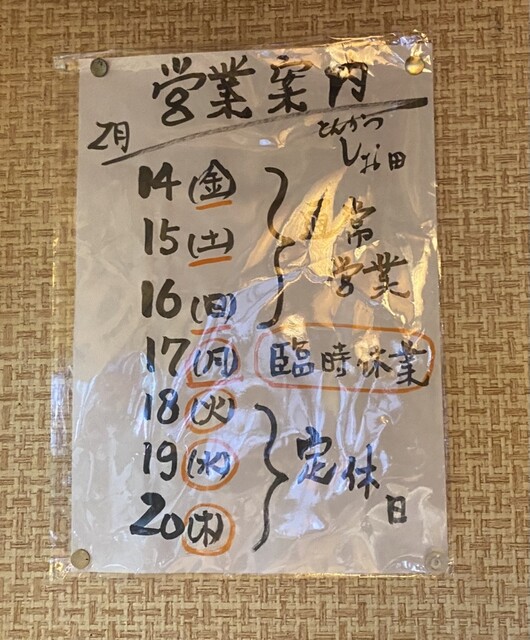 営業案内
2月
とんかつ
しお田
14(金)
15(土)
16(日)
常
営業
17(月) 臨時休業
18(火)
19(水)
20(木)
定休日